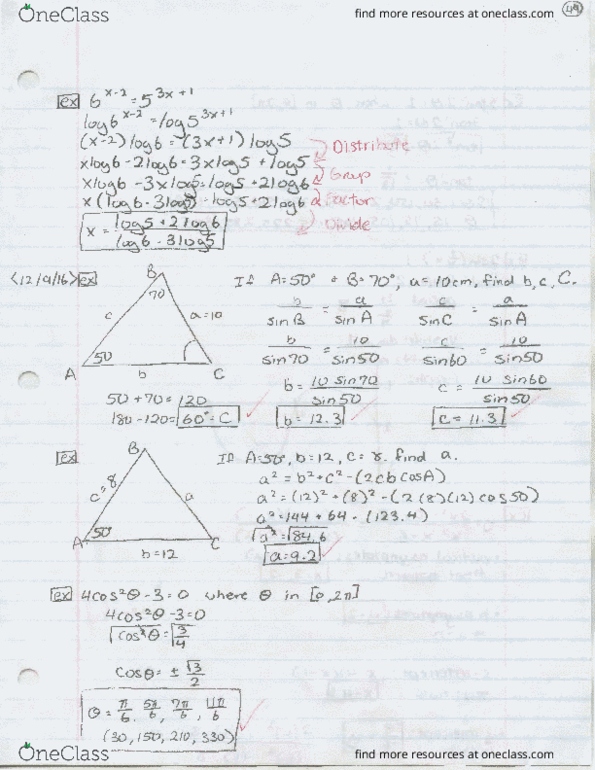 OneClass
find more resources at oneclass.com
49
ex 6^(x-2) = 5^(3x+1)
log6^(x-2) = log5^(3x+1)
(x-2)log6 = (3x+1)log5
xlog6 - 2log6 = 3xlog5 + log5 Distribute
xlog6 - 3xlog5 = log5 + 2log6 Group
x(log6 - 3log5) = log5 + 2log6 Factor
x = (log5 + 2log6)/(log6 - 3log5) Divide
<12/9/16> ex If A=50° + B=70°, a=10cm, find b, c, C.
B
70
c a=10
50
A b C
b/sinB = a/sinA c/sinC = a/sinA
b/sin70 = 10/sin50 c/sin60 = 10/sin50
b = 10 sin70/sin50 c = 10 sin60/sin50
50 + 70 = 120
180 - 120 = 60° = C b = 12.3 c = 11.3
ex If A=50°, b=12, c=8. find a.
B
c=8 a
50°
A C
b=12
a² = b² + c² - (2cb cosA)
a² = (12)² + (8)² - (2(8)(12) cos50)
a² = 144 + 64 - (123.4)
√a² = √84.6
a = 9.2
ex 4cos²θ - 3 = 0 where θ in [0, 2π]
4cos²θ - 3 = 0
√cos²θ = √3/4
cosθ = ± √3/2
θ = π/6, 5π/6, 7π/6, 11π/6
(30, 150, 210, 330)
OneClass
find more resources at oneclass.com